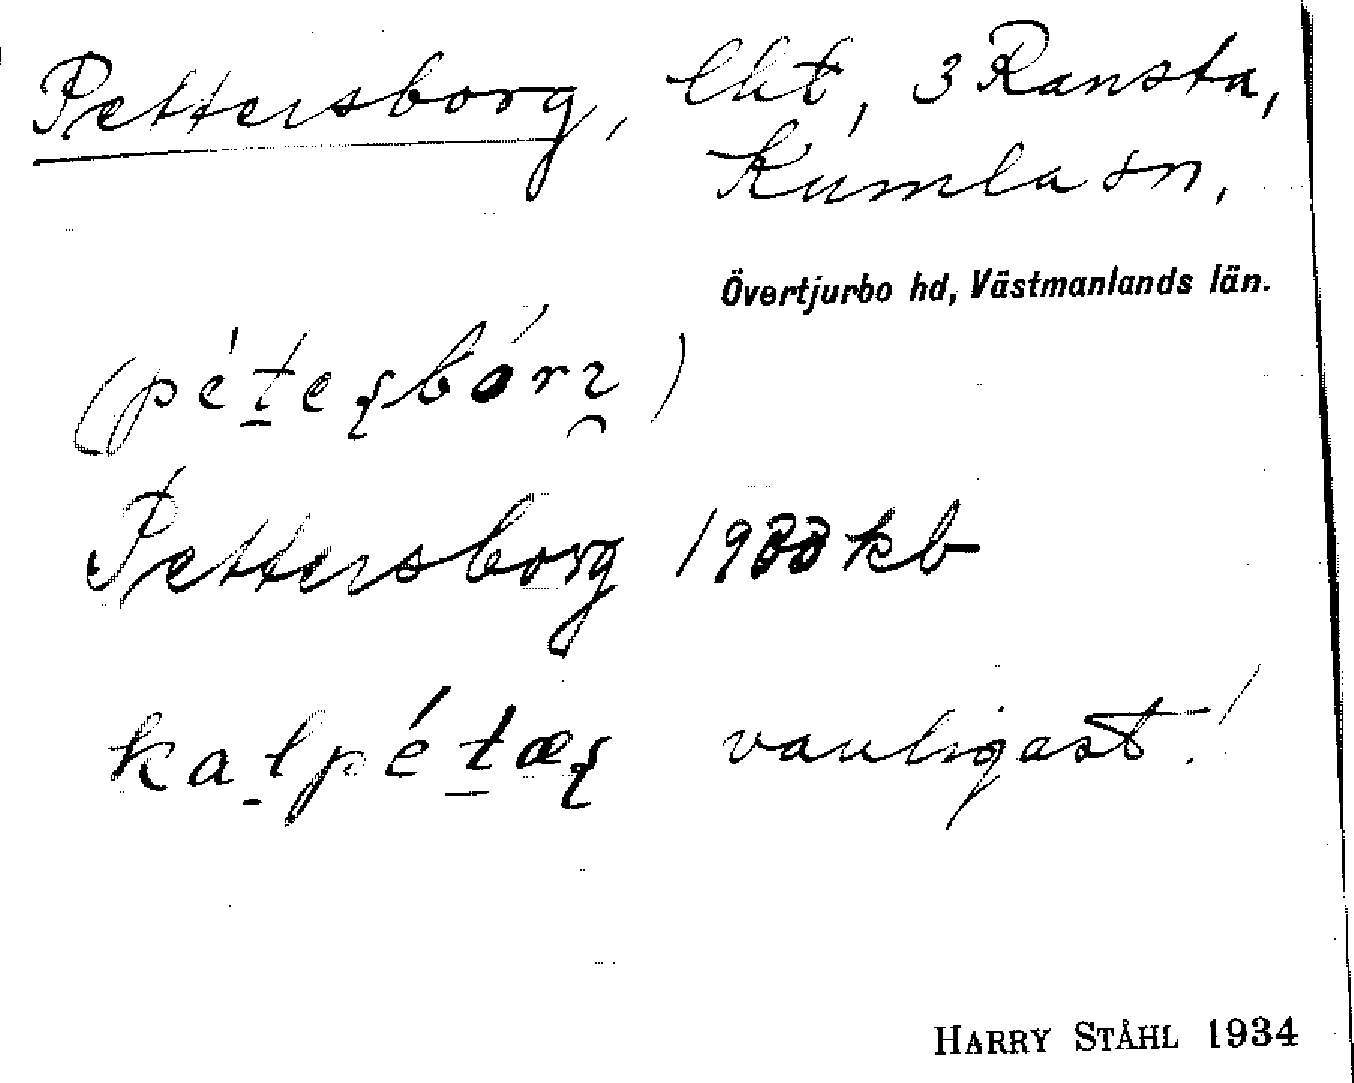 Pettersborg, lht, 3 Ransta,
Kumla sn,
Övertjurbo hd, Västmanlands län.
Pettersborg 1900 kb
vanligast!
HARRY STÅHL 1934